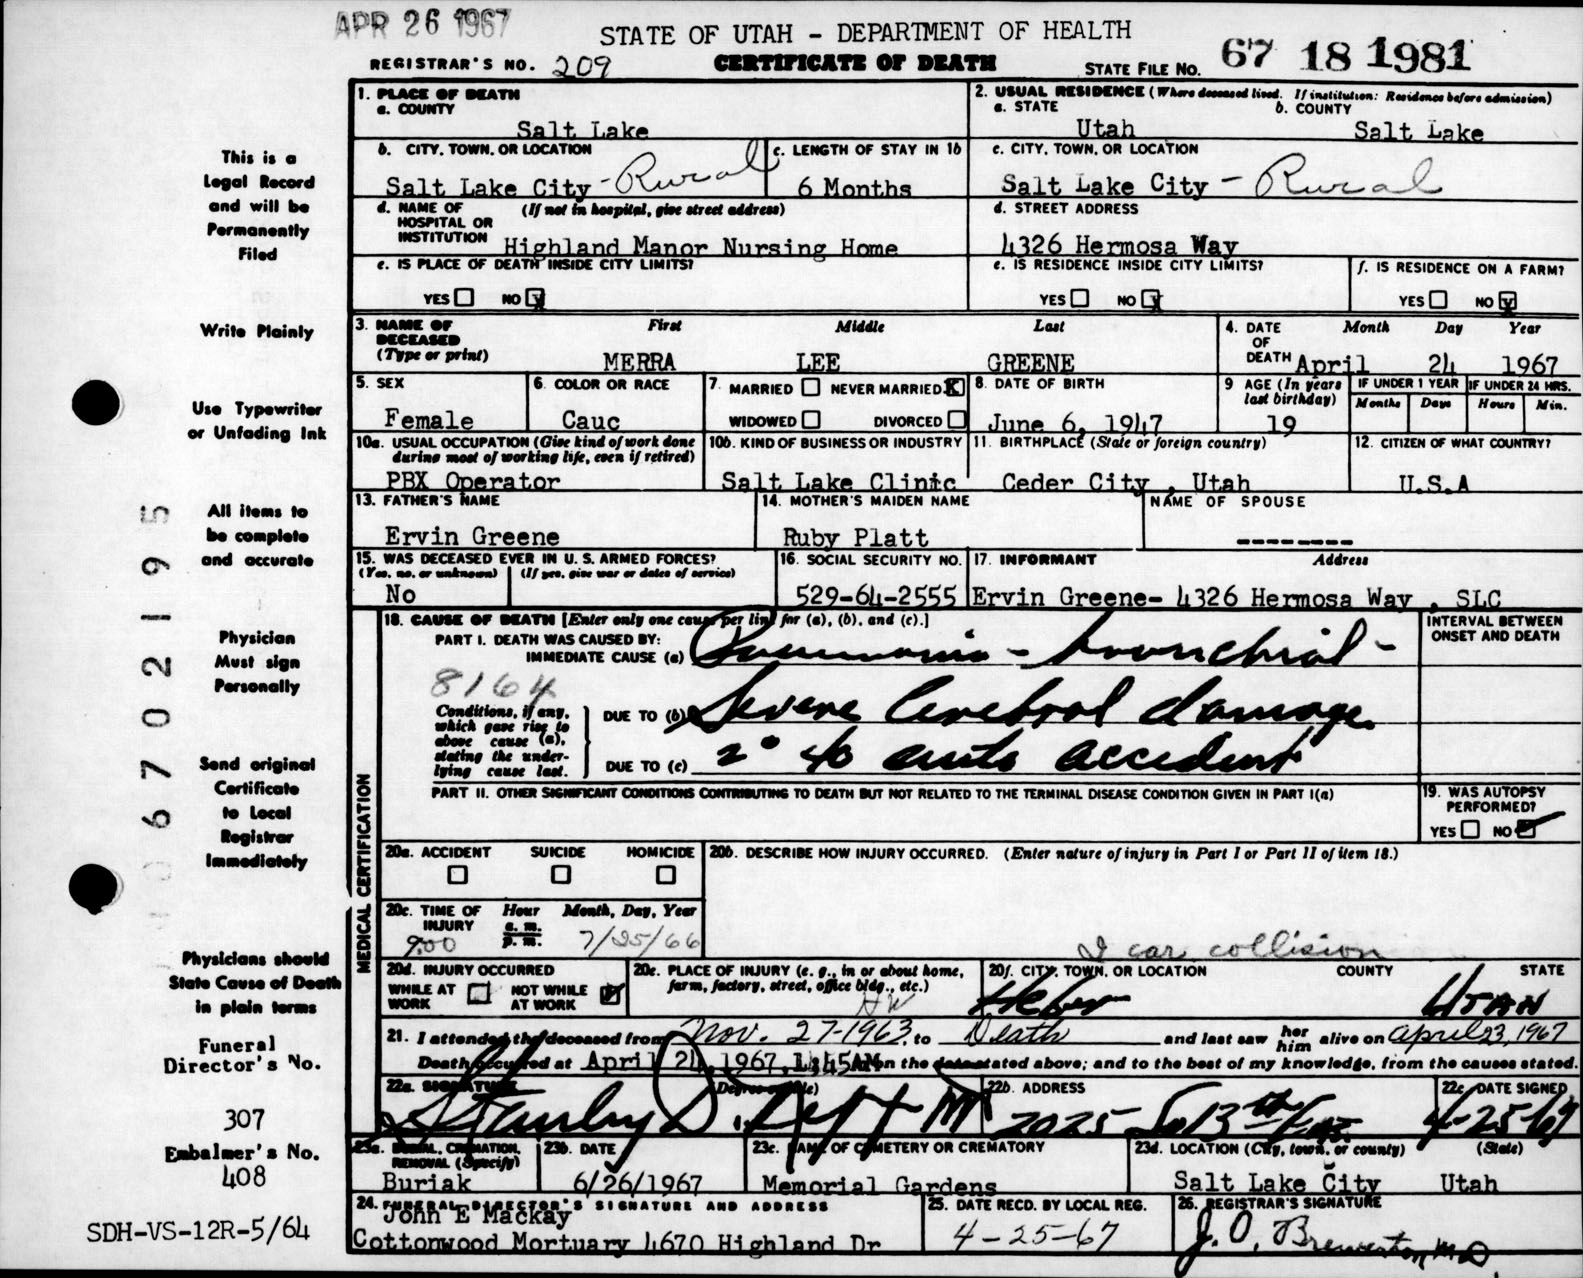 APR 26 1967
STATE OF UTAH - DEPARTMENT OF HEALTH
REGISTRAR'S NO. 209 CERTIFICATE OF DEATH STATE FILE NO. 67 18 1981
1. PLACE OF DEATH
a. COUNTY
Salt Lake
2. USUAL RESIDENCE (Where deceased lived. If institution: Residence before admission)
a. STATE b. COUNTY
Utah Salt Lake
b. CITY, TOWN, OR LOCATION
Salt Lake City - Rural
c. LENGTH OF STAY IN 1b
6 Months
c. CITY, TOWN, OR LOCATION
Salt Lake City - Rural
d. NAME OF HOSPITAL OR INSTITUTION (If not in hospital, give street address)
Highland Manor Nursing Home
d. STREET ADDRESS
4326 Hermosa Way
e. IS PLACE OF DEATH INSIDE CITY LIMITS?
YES NO X
e. IS RESIDENCE INSIDE CITY LIMITS?
YES NO X
f. IS RESIDENCE ON A FARM?
YES NO X
3. NAME OF DECEASED (Type or print) First Middle Last
MERRA LEE GREENE
4. DATE OF DEATH Month Day Year
April 24 1967
5. SEX
Female
6. COLOR OR RACE
Cauc
7. MARRIED NEVER MARRIED X
WIDOWED DIVORCED
8. DATE OF BIRTH
June 6, 1947
9 AGE (In years last birthday)
19
IF UNDER 1 YEAR
Months Days
IF UNDER 24 HRS.
Hours Min.
10a. USUAL OCCUPATION (Give kind of work done during most of working life, even if retired)
PBX Operator
10b. KIND OF BUSINESS OR INDUSTRY
Salt Lake Clinic
11. BIRTHPLACE (State or foreign country)
Ceder City , Utah
12. CITIZEN OF WHAT COUNTRY?
U.S.A
13. FATHER'S NAME
Ervin Greene
14. MOTHER'S MAIDEN NAME
Ruby Platt
NAME OF SPOUSE
--------
15. WAS DECEASED EVER IN U. S. ARMED FORCES?
(Yes, no, or unknown) (If yes, give war or dates of service)
No
16. SOCIAL SECURITY NO.
529-64-2555
17. INFORMANT Address
Ervin Greene- 4326 Hermosa Way , SLC
18. CAUSE OF DEATH [Enter only one cause per line for (a), (b), and (c).]
PART I. DEATH WAS CAUSED BY:
IMMEDIATE CAUSE (a) Pneumonia - bronchial -
8164
Conditions, if any, which gave rise to above cause (a), stating the underlying cause last.
DUE TO (b) Severe Cerebral damage
DUE TO (c) 2° to auto accident
INTERVAL BETWEEN ONSET AND DEATH
PART II. OTHER SIGNIFICANT CONDITIONS CONTRIBUTING TO DEATH BUT NOT RELATED TO THE TERMINAL DISEASE CONDITION GIVEN IN PART I(a)
19. WAS AUTOPSY PERFORMED?
YES NO
MEDICAL CERTIFICATION
20a. ACCIDENT SUICIDE HOMICIDE
20b. DESCRIBE HOW INJURY OCCURRED. (Enter nature of injury in Part I or Part II of item 18.)
2 car collision
20c. TIME OF INJURY Hour a. m. p. m. Month, Day, Year
9:00 7/25/66
20d. INJURY OCCURRED
WHILE AT WORK NOT WHILE AT WORK
20e. PLACE OF INJURY (e. g., in or about home, farm, factory, street, office bldg., etc.)
HW
20f. CITY, TOWN, OR LOCATION COUNTY STATE
Heber Utah
21. I attended the deceased from Nov. 27-1963, to Death and last saw her him alive on April 23, 1967
Death occurred at April 24, 1967, 1:45AM on the date stated above; and to the best of my knowledge, from the causes stated.
22a. SIGNATURE (Degree or title)
Stanley
22b. ADDRESS
2025 So 13th East
22c. DATE SIGNED
4-25-67
23a. BURIAL, CREMATION, REMOVAL (Specify)
Buriak
23b. DATE
6/26/1967
23c. NAME OF CEMETERY OR CREMATORY
Memorial Gardens
23d. LOCATION (City, town, or county) (State)
Salt Lake City Utah
24. FUNERAL DIRECTOR'S SIGNATURE AND ADDRESS
John E Mackay
Cottonwood Mortuary 4670 Highland Dr
25. DATE RECD. BY LOCAL REG.
4-25-67
26. REGISTRAR'S SIGNATURE
J. O. Brewerton, MD
This is a
Legal Record
and will be
Permanently
Filed
Write Plainly
Use Typewriter
or Unfading Ink
All items to
be complete
and accurate
Physician
Must sign
Personally
Send original
Certificate
to Local
Registrar
Immediately
Physicians should
State Cause of Death
in plain terms
Funeral
Director's No.
307
Embalmer's No.
408
SDH-VS-12R-5/64